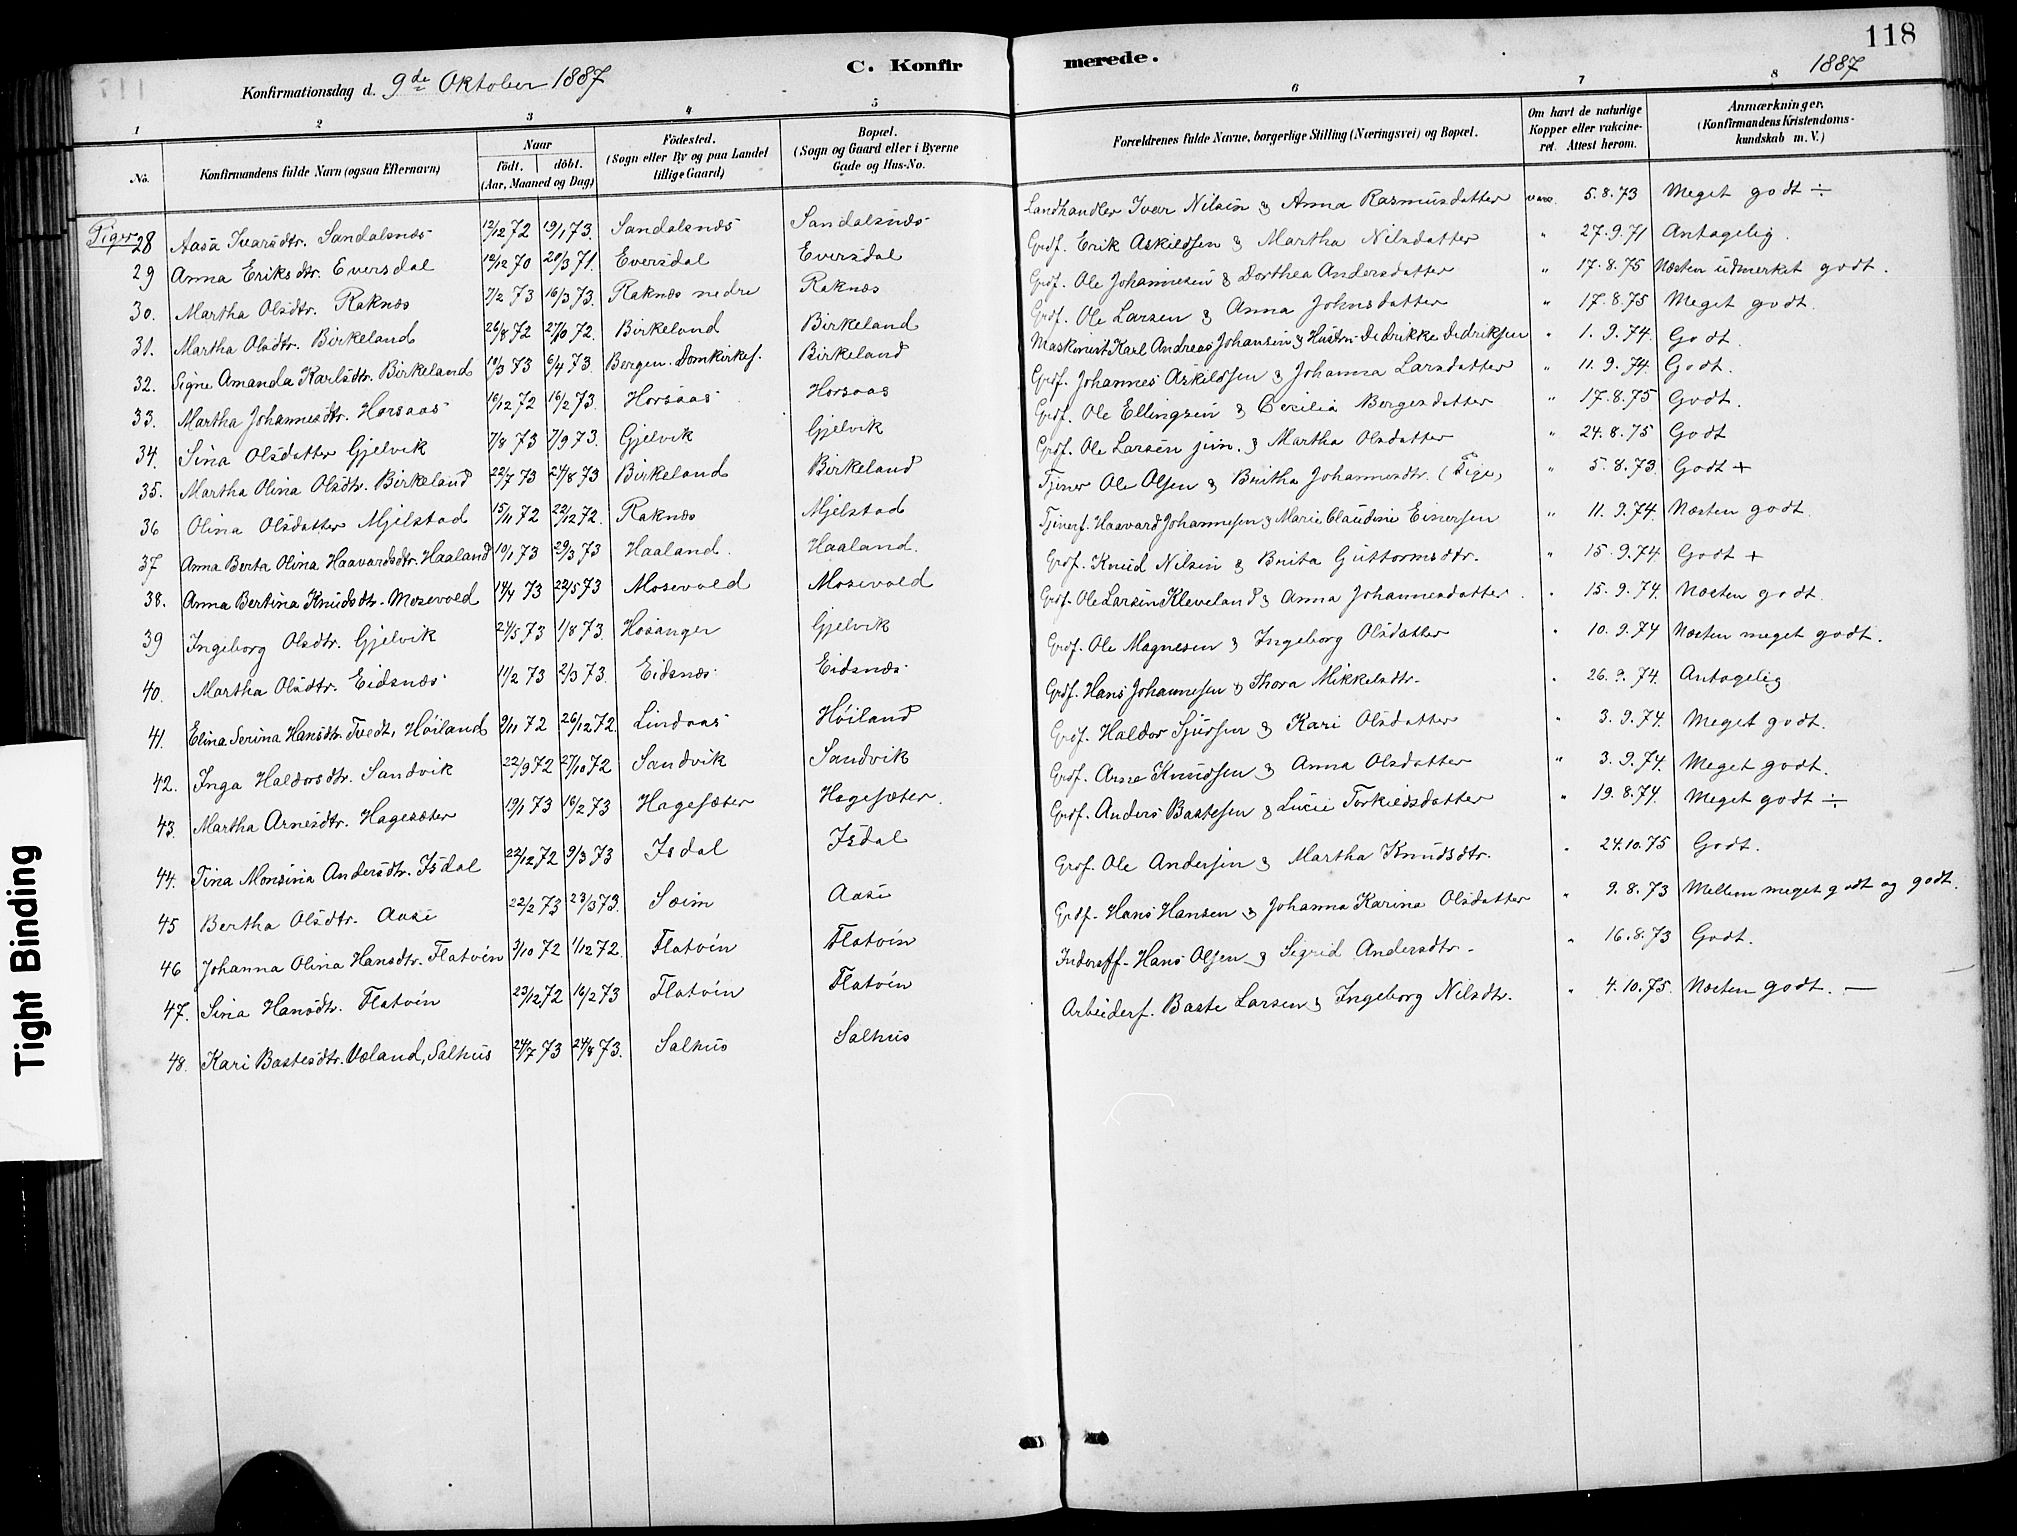 118
1887
Konfirmationsdag d. 9de Oktober 1887
C. Konfirmerede.
1 2 3 4 5 6 7 8
No. Konfirmandens fulde Navn (ogsaa Efternavn) Naar födt. döbt. (Aar, Maaned og Dag) Födested. (Sogn eller By og paa Landet tillige Gaard) Bopæl. (Sogn og Gaard eller i Byerne Gade og Hus-No. Forældrenes fulde Navne, borgerlige Stilling (Næringsvei) og Bopæl. Om havt de naturlige Kopper eller vakcineret. Attest herom. Anmærkninger. (Konfirmandens Kristendomskundskab m. V.)
Piger
28 Aasa Ivarsdtr. Sandalsnæs 12/12 72 19/1 73. Sandalsnæs Sandalsnæs Landhandler Ivar Nilsen & Anna Rasmusdatter vacc. 5.8.73 Meget godt ÷
29 Anna Eriksdtr. Eversdal 12/12 70 20/3 71. Eversdal Eversdal Grdf. Erik Askildsen & Martha Nilsdatter " 27.9.71 Antagelig.
30. Martha Olsdtr. Raknæs 7/2 73 16/3 73. Raknæs nedre Raknæs Grdf. Ole Johannesen & Dorthea Andersdatter " 17.8.75 Næsten udmerket godt.
31. Martha Olsdtr. Birkeland 26/8 72 27/10 72. Birkeland Birkeland Grdf. Ole Larsen & Anna Johnsdatter " 17.8.75 Meget godt.
32. Signe Amanda Karlsdtr. Birkeland 19/3 73 6/4 73. Bergen. Domkirkes. Birkeland Maskinist Karl Andreas Johansen & Hustru Dedrikke Dedriksen " 1.9.74. Godt.
33. Martha Johannesdtr. Horsaas 16/12 72 16/2 73. Horsaas Horsaas Grdf. Johannes Askildsen & Johanna Larsdatter " 11.9.74. Godt.
34. Sina Olsdatter Gjelvik 7/8 73 7/9 73. Gjelvik Gjelvik Grdf. Ole Ellingsen & Cecilia Bergesdatter " 17.8.75 Godt.
35. Martha Olina Olsdtr. Birkeland 22/7 73 24/8 73 Birkeland Birkeland Grdf. Ole Larsen jun. & Martha Olsdatter " 24.8.75 Godt
36 Olina Olsdatter Mjelstad 15/11 72 22/12 72. Raknæs Mjelstad Tjener Ole Olsen & Britha Johannesdtr. (Pige) " 5.8.73. Godt +
37 Anna Berta Olina Haavardsdtr. Haaland 19/1 73 29/3 73 Haaland. Haaland. Tjenerf. Haavard Johannesen & Marie Claudine Einersen " 11.9.74. Næsten godt.
38. Anna Bertina Knudsdtr. Mosevold 14/4 73 22/5 73 Mosevold Mosevold Grdf. Knud Nilsen & Brita Guttormsdtr. " 15.9.74. Godt +
39 Ingeborg Olsdtr. Gjelvik 24/5 73 1/8 73 Hosanger Gjelvik Grdf. Ole Larsen Kleveland & Anna Johannesdatter. " 15.9.74. Næsten godt.
40. Martha Olsdtr. Eidsnæs 11/2 73 2/3 73. Eidsnæs Eidsnæs Grdf. Ole Magnesen & Ingeborg Olsdatter " 10.9.74 Næsten meget godt.
41. Elina Serina Hansdtr. Tvedt, Höiland 9/11 72 26/12 72. Lindaas Höiland Grdf. Hans Johannesen & Thora Mikkelsdtr. " 26.9.74. Antagelig
42. Inga Haldorsdtr. Sandvik 22/9 72 27/10 72 Sandvik Sandvik Grdf. Haldor Sjursen & Kari Olsdatter " 3.9.74. Meget godt.
43. Martha Arnesdtr. Hagesæter 19/1 73 16/2 73 Hagesæter Hagesæter. Grdf. Arne Knudsen & Anna Olsdatter " 3.9.74. Meget godt.
44. Tina Monsina Andersdtr. Isdal 22/12 72 9/3 73 Isdal Isdal Grdf. Anders Bastesen & Lucie Torkildsdatter " 19.8.74. Meget godt ÷
45 Bertha Olsdtr. Aase 22/2 73 23/3 73. Seim Aase Grdf. Ole Andersen & Martha Knudsdtr. " 24.10.75 Godt.
46 Johanna Olina Hansdtr. Flatöen 3/10 72 1/12 72. Flatöen Flatöen Grdf. Hans Hansen & Johanna Karina Olsdatter " 9.8.73 Mellem meget godt og godt.
47. Sina Hansdtr. Flatöen 23/12 72 16/2 73 Flatöen Flatöen Inderstf. Hans Olsen & Sigrid Andersdtr. " 16.8.73 Godt.
48. Kari Bastesdtr. Væland, Salhus 24/7 73 24/8 73. Salhus Salhus Arbeiderf. Baste Larsen & Ingeborg Nilsdtr. " 4.10.75. Næsten godt. —
Tight Binding